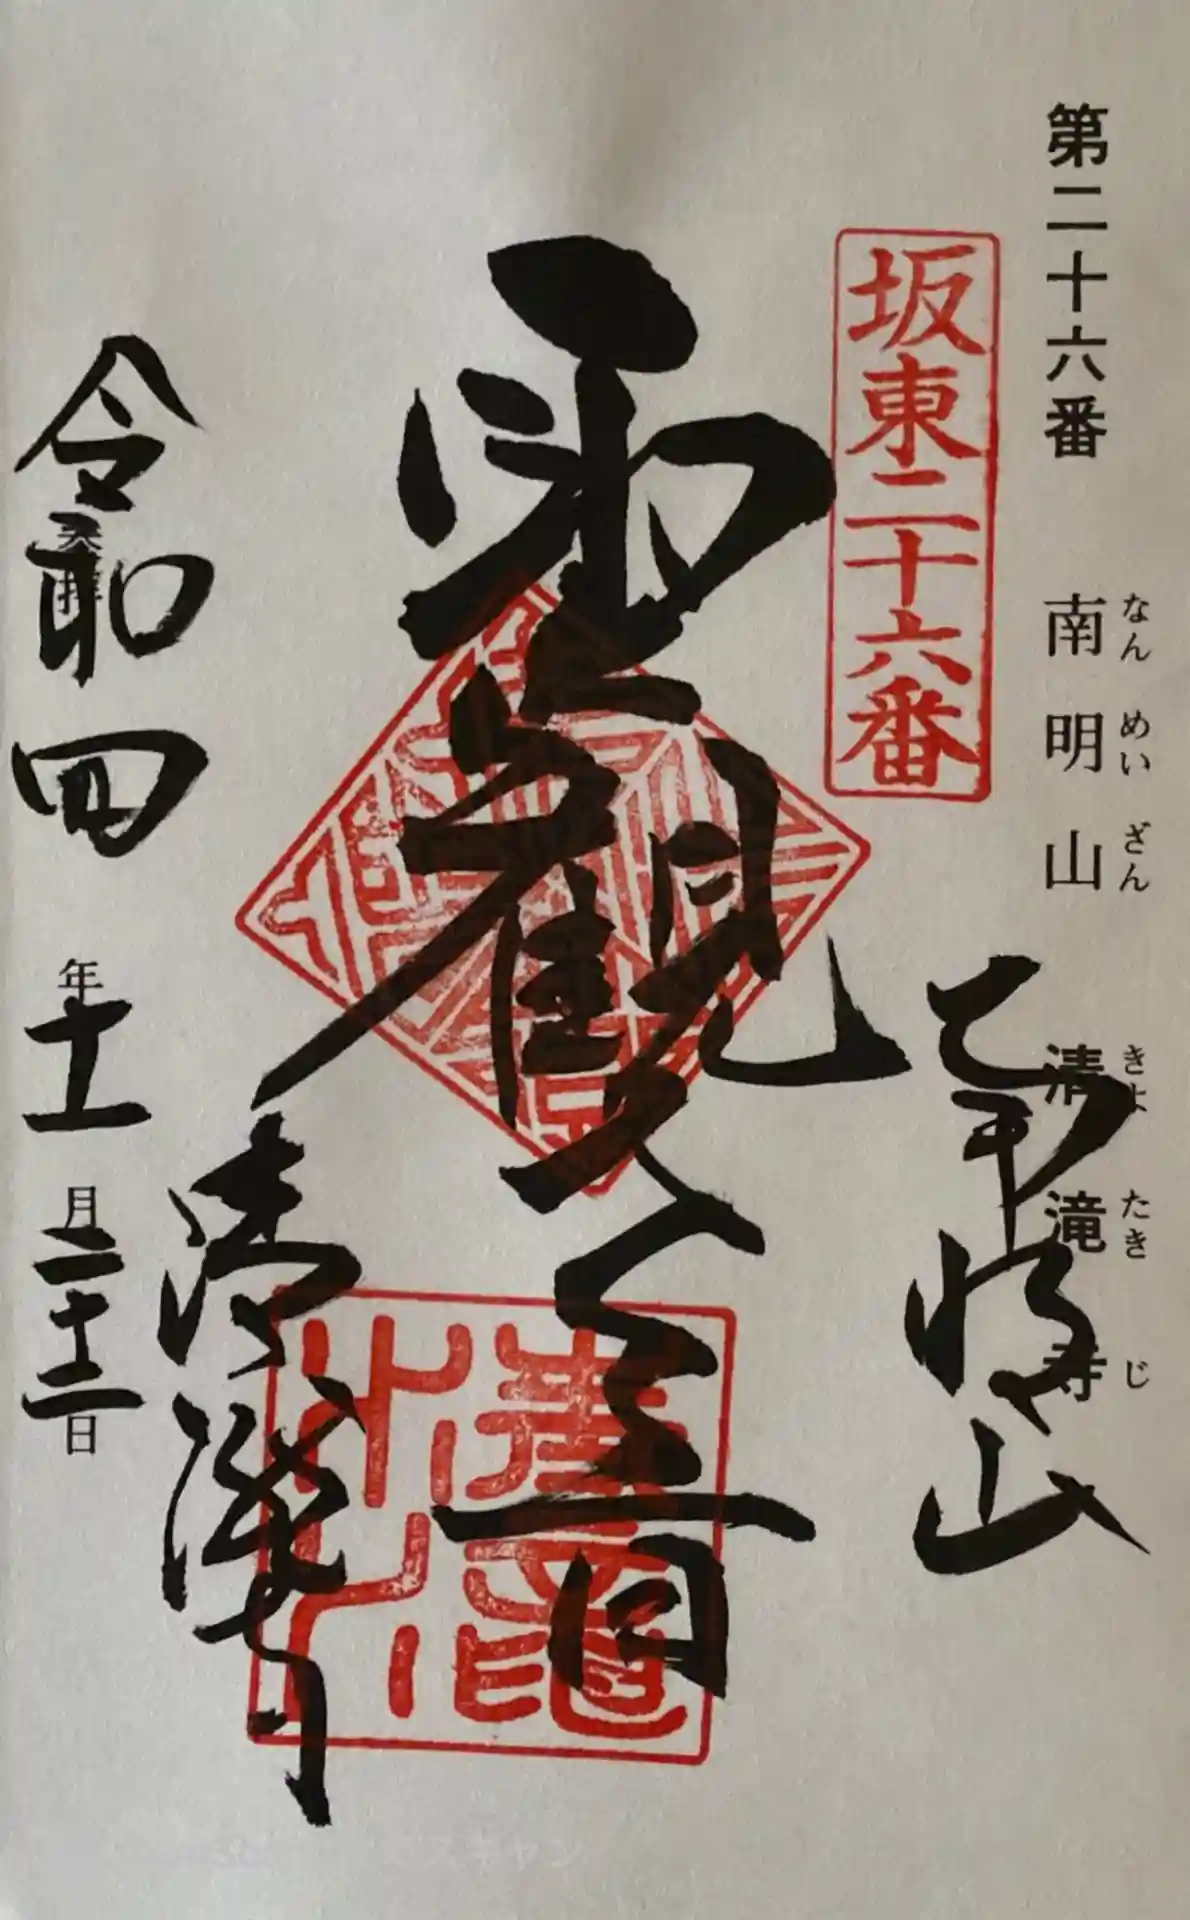 第二十六番 南明山 清滝寺
なんめいざん きよたきじ
坂東二十六番
南明山
聖観世音
清滝寺
奉拝
令和四年十一月二十三日